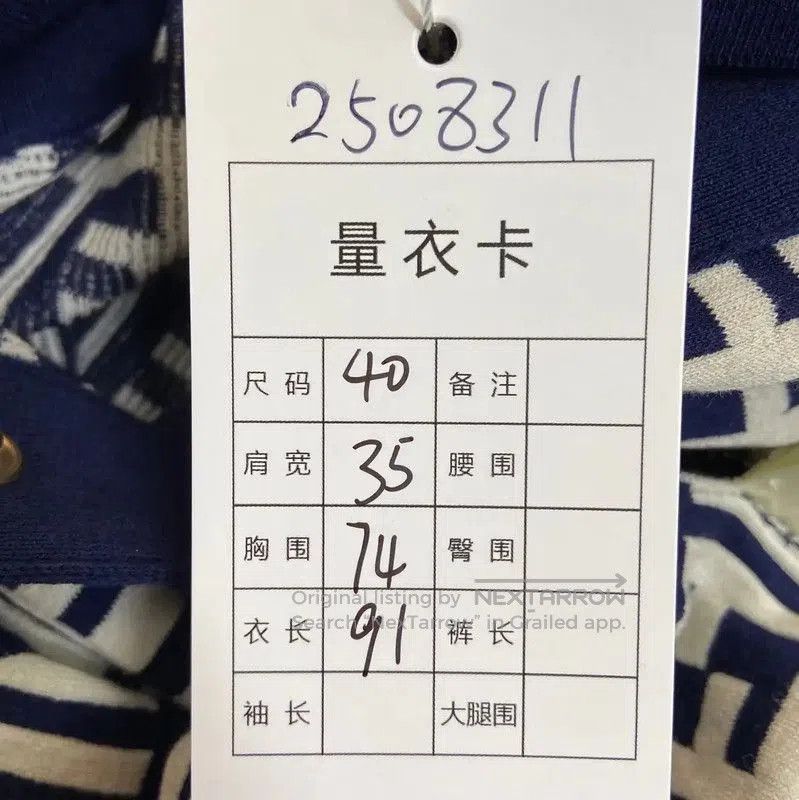 2508311
量衣卡
尺码 40 备注
肩宽 35 腰围
胸围 74 臀围
Original listing by NEXTARROW
衣长 91 裤长
Search "NexTarrow" in Grailed app.
袖长 大腿围